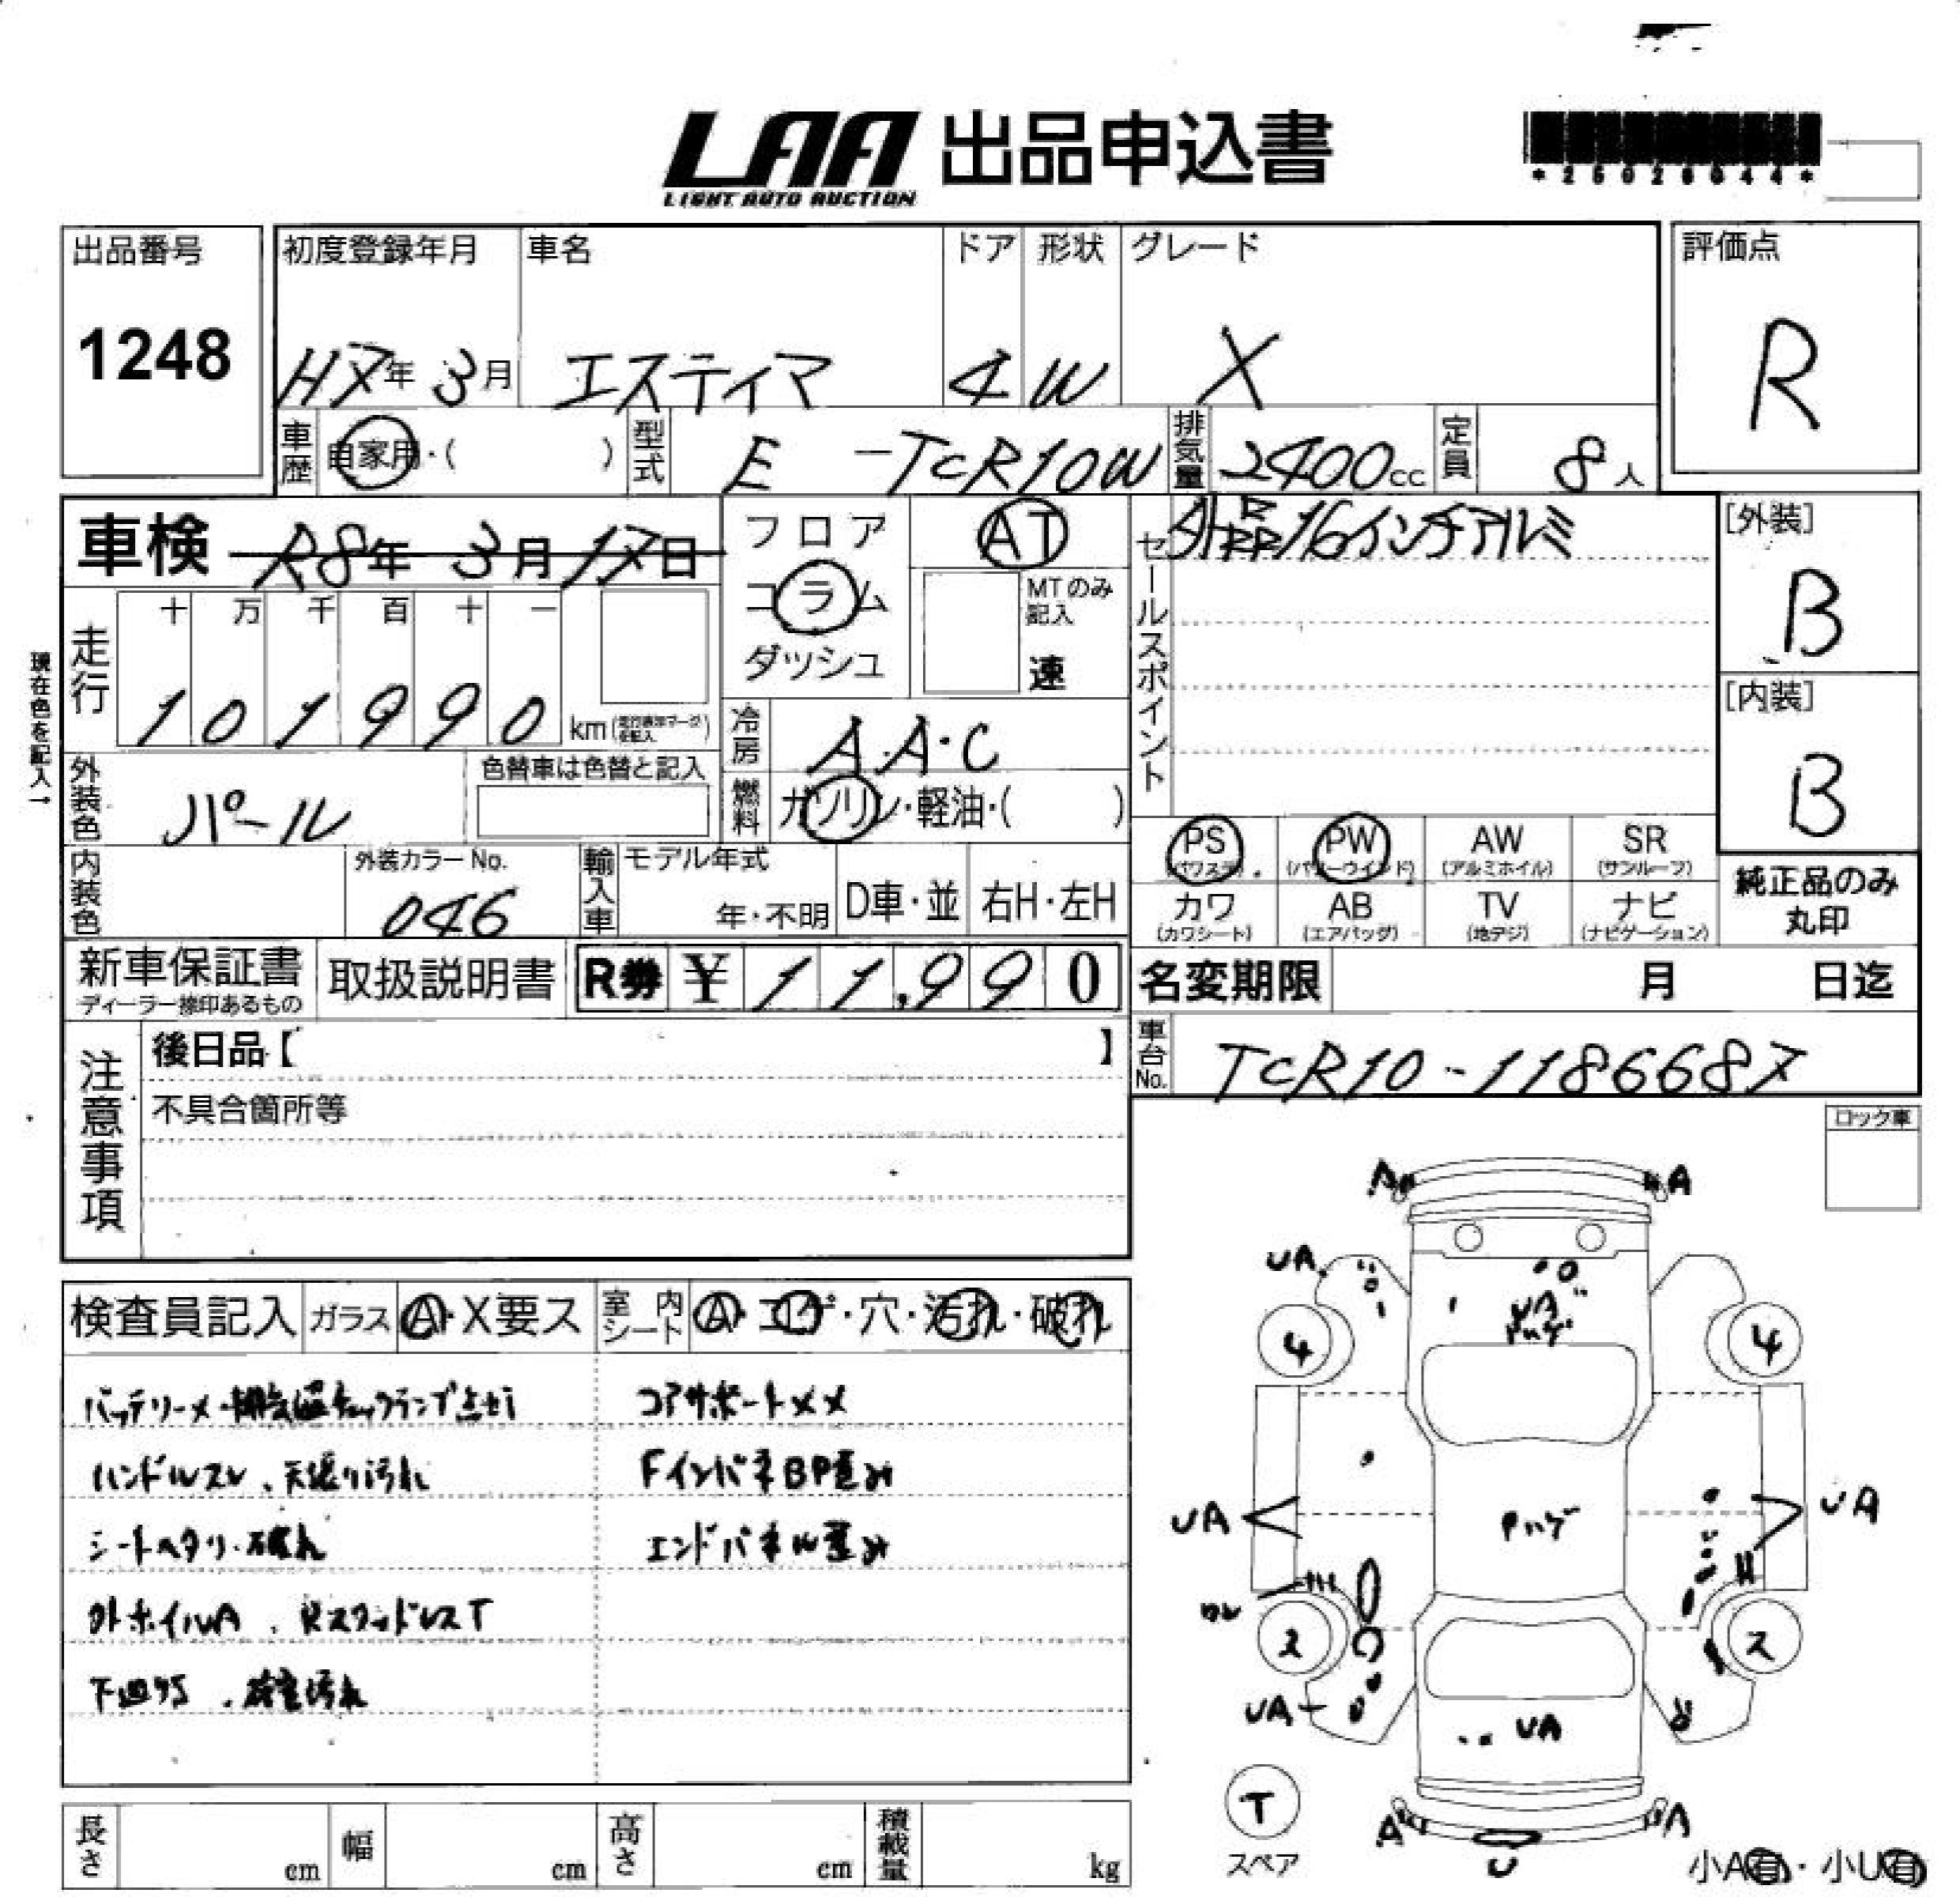 LAA 出品申込書
LIGHT AUTO AUCTION
出品番号
1248
初度登録年月 車名 ドア 形状 グレード
H7年 3月 エスティマ 4 W X
評価点
R
車歴 自家用・( ) 型式 E -TCR10W 排気量 2400cc 定員 8人
車検 R8年 3月 17日
フロア
コラム
ダッシュ
AT
MTのみ記入
速
セールスポイント
外品16インチアルミ
[外装]
B
[内装]
B
現在色を記入→
走行
十 万 千 百 十 一
1 0 1 9 9 0 km
冷房 A.A.C
燃料 ガソリン・軽油・( )
外装色 パール
色替車は色替と記入
内装色
外装カラーNo.
046
輸入車 モデル年式
年・不明 D車・並 右H・左H
PS AW SR PW
(パワステ) (パワーウインド) (アルミホイル) (サンルーフ)
カワ AB TV ナビ
(カワシート) (エアバッグ) (地デジ) (ナビゲーション)
純正品のみ
丸印
新車保証書
ディーラー捺印あるもの
取扱説明書
R券 ¥ 1 1,9 9 0
名変期限 月 日迄
車台No. TCR10-1186687
注意事項
後日品【 】
不具合箇所等
ロック車
検査員記入 ガラス A・X要ス 室内シート A・コゲ・穴・汚れ・破れ
バッテリーメ・排気温チェックランプ点せず
コアサポートXメ
ハンドルスレ、天張り汚れ
FインパネBP歪み
シートヘタリ・破れ
エンドパネル歪み
外ホイルA、RスタッドレスT
下廻りS、荷室汚れ
A A
UA
UA
Pハゲ
4 4
UA UA
Pハゲ
ワレ
ス ス
UA
UA
T
スペア
A A
U
小A有・小U有
長さ cm 幅 cm 高さ cm 積載量 kg